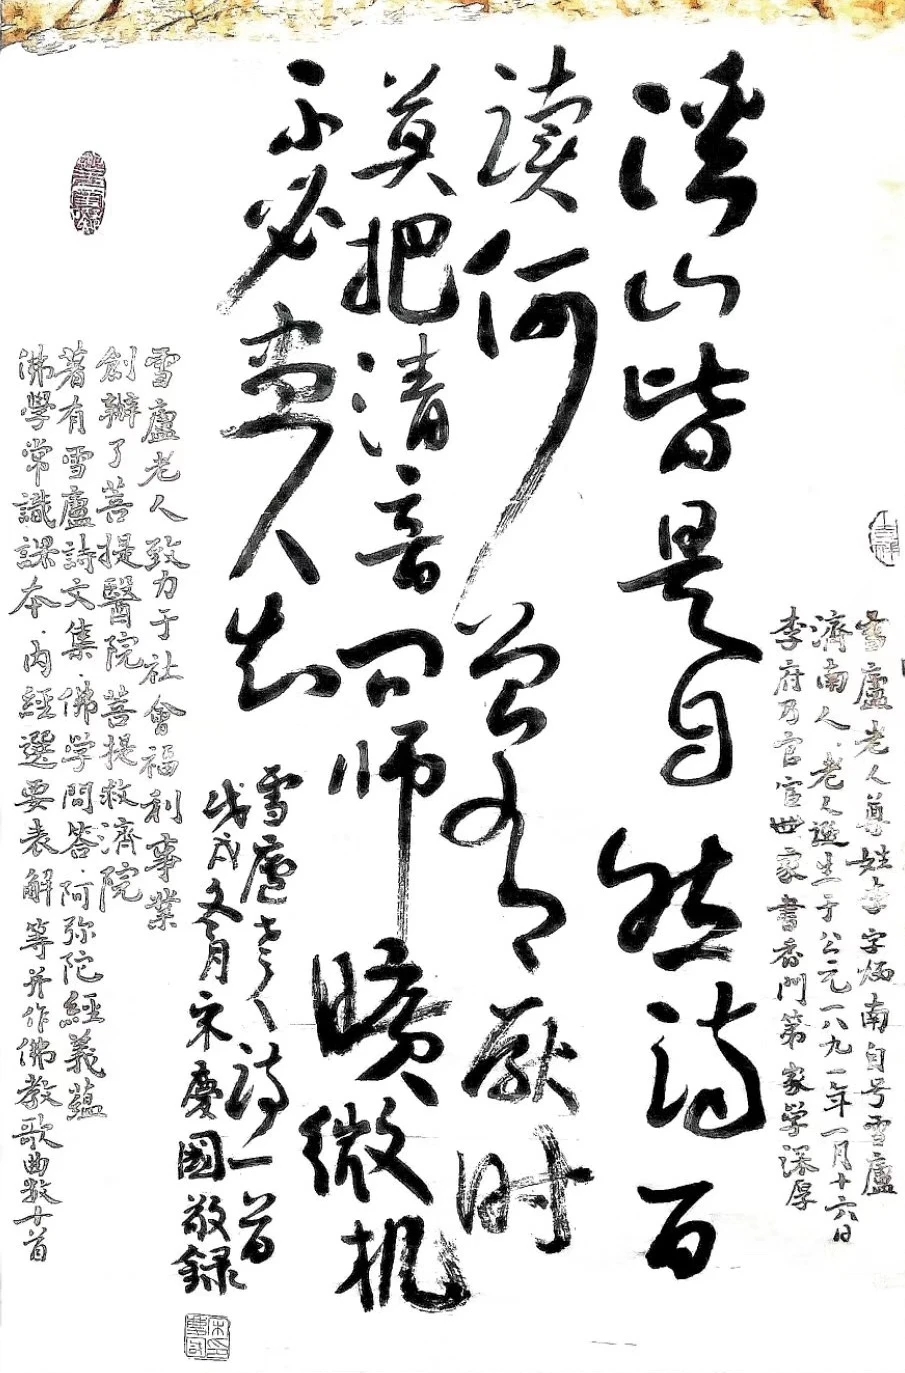 雪廬老人尊姓李字炳南自号雪廬
濟南人.老人誕生于公元一八九一年一月十六日
李府乃官宦世家書香门第家学深厚
溪山皆是自然诗百
读何曾有厭时
莫把清音问师曠微机
不必盡人知
雪廬老人诗一首
戊戌冬月宋慶國敬録
雪廬老人致力于社會福利事業
創辦了菩提醫院菩提救濟院
著有雪廬詩文集.佛学問答.阿弥陀經義蕴
佛學常識課本.内經選要表解等并作佛教歌曲数十首